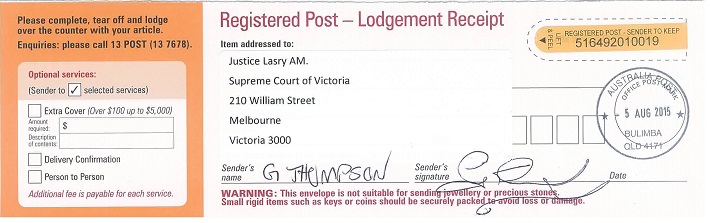 Please complete, tear off and lodge
over the counter with your article.
Enquiries: please call 13 POST (13 7678).
Optional services:
(Sender to ✓ selected services)
Extra Cover (Over $100 up to $5,000)
Amount
required: $
Description
of contents:
Delivery Confirmation
Person to Person
Additional fee is payable for each service.
Registered Post – Lodgement Receipt
Item addressed to:
Justice Lasry AM.
Supreme Court of Victoria
210 William Street
Melbourne
Victoria 3000
Sender's
name G THOMPSON
Sender's
signature
Date
WARNING: This envelope is not suitable for sending jewellery or precious stones.
Small rigid items such as keys or coins should be securely packed to avoid loss or damage.
LIFT
& PEEL
REGISTERED POST - SENDER TO KEEP
516492010019
AUSTRALIA POST
OFFICE POSTMARK
- 5 AUG 2015
BULIMBA
QLD 4171